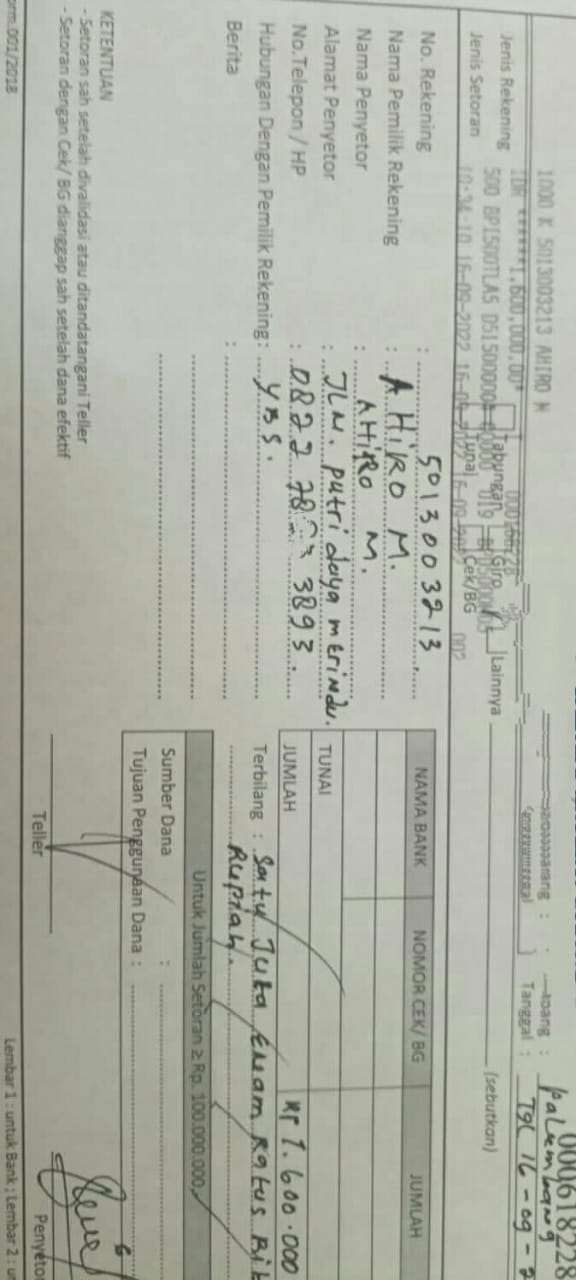 000618228
1000 K 5013003213 AHIRO M
IDR ******1,600,000.00*
500 BPI500TLAS D515000004
10:34:10 16-09-2022 16-09-2022
Cabang : Palembang
Tanggal : Tgl 16-09-2
Jenis Rekening Tabungan Giro Lainnya (sebutkan)
Jenis Setoran Tunai Cek/BG
No. Rekening : 5013003213
Nama Pemilik Rekening : AHIRO M.
Nama Penyetor : AHIRO M.
Alamat Penyetor : JLN. putri daya merindu.
No.Telepon / HP : 0822 3893.
Hubungan Dengan Pemilik Rekening : YBS.
Berita :
NAMA BANK NOMOR CEK/ BG JUMLAH
TUNAI
JUMLAH Rp 1.600.000
Terbilang : Satu Juta Enam Ratus Rib
Rupiah.
Untuk Jumlah Setoran ≥ Rp. 100.000.000,
Sumber Dana :
Tujuan Penggunaan Dana :
KETENTUAN
- Setoran sah setelah divalidasi atau ditandatangani Teller
- Setoran dengan Cek/ BG dianggap sah setelah dana efektif
Teller
Penyeto
orm.001/2018
Lembar 1 : untuk Bank ; Lembar 2 : u